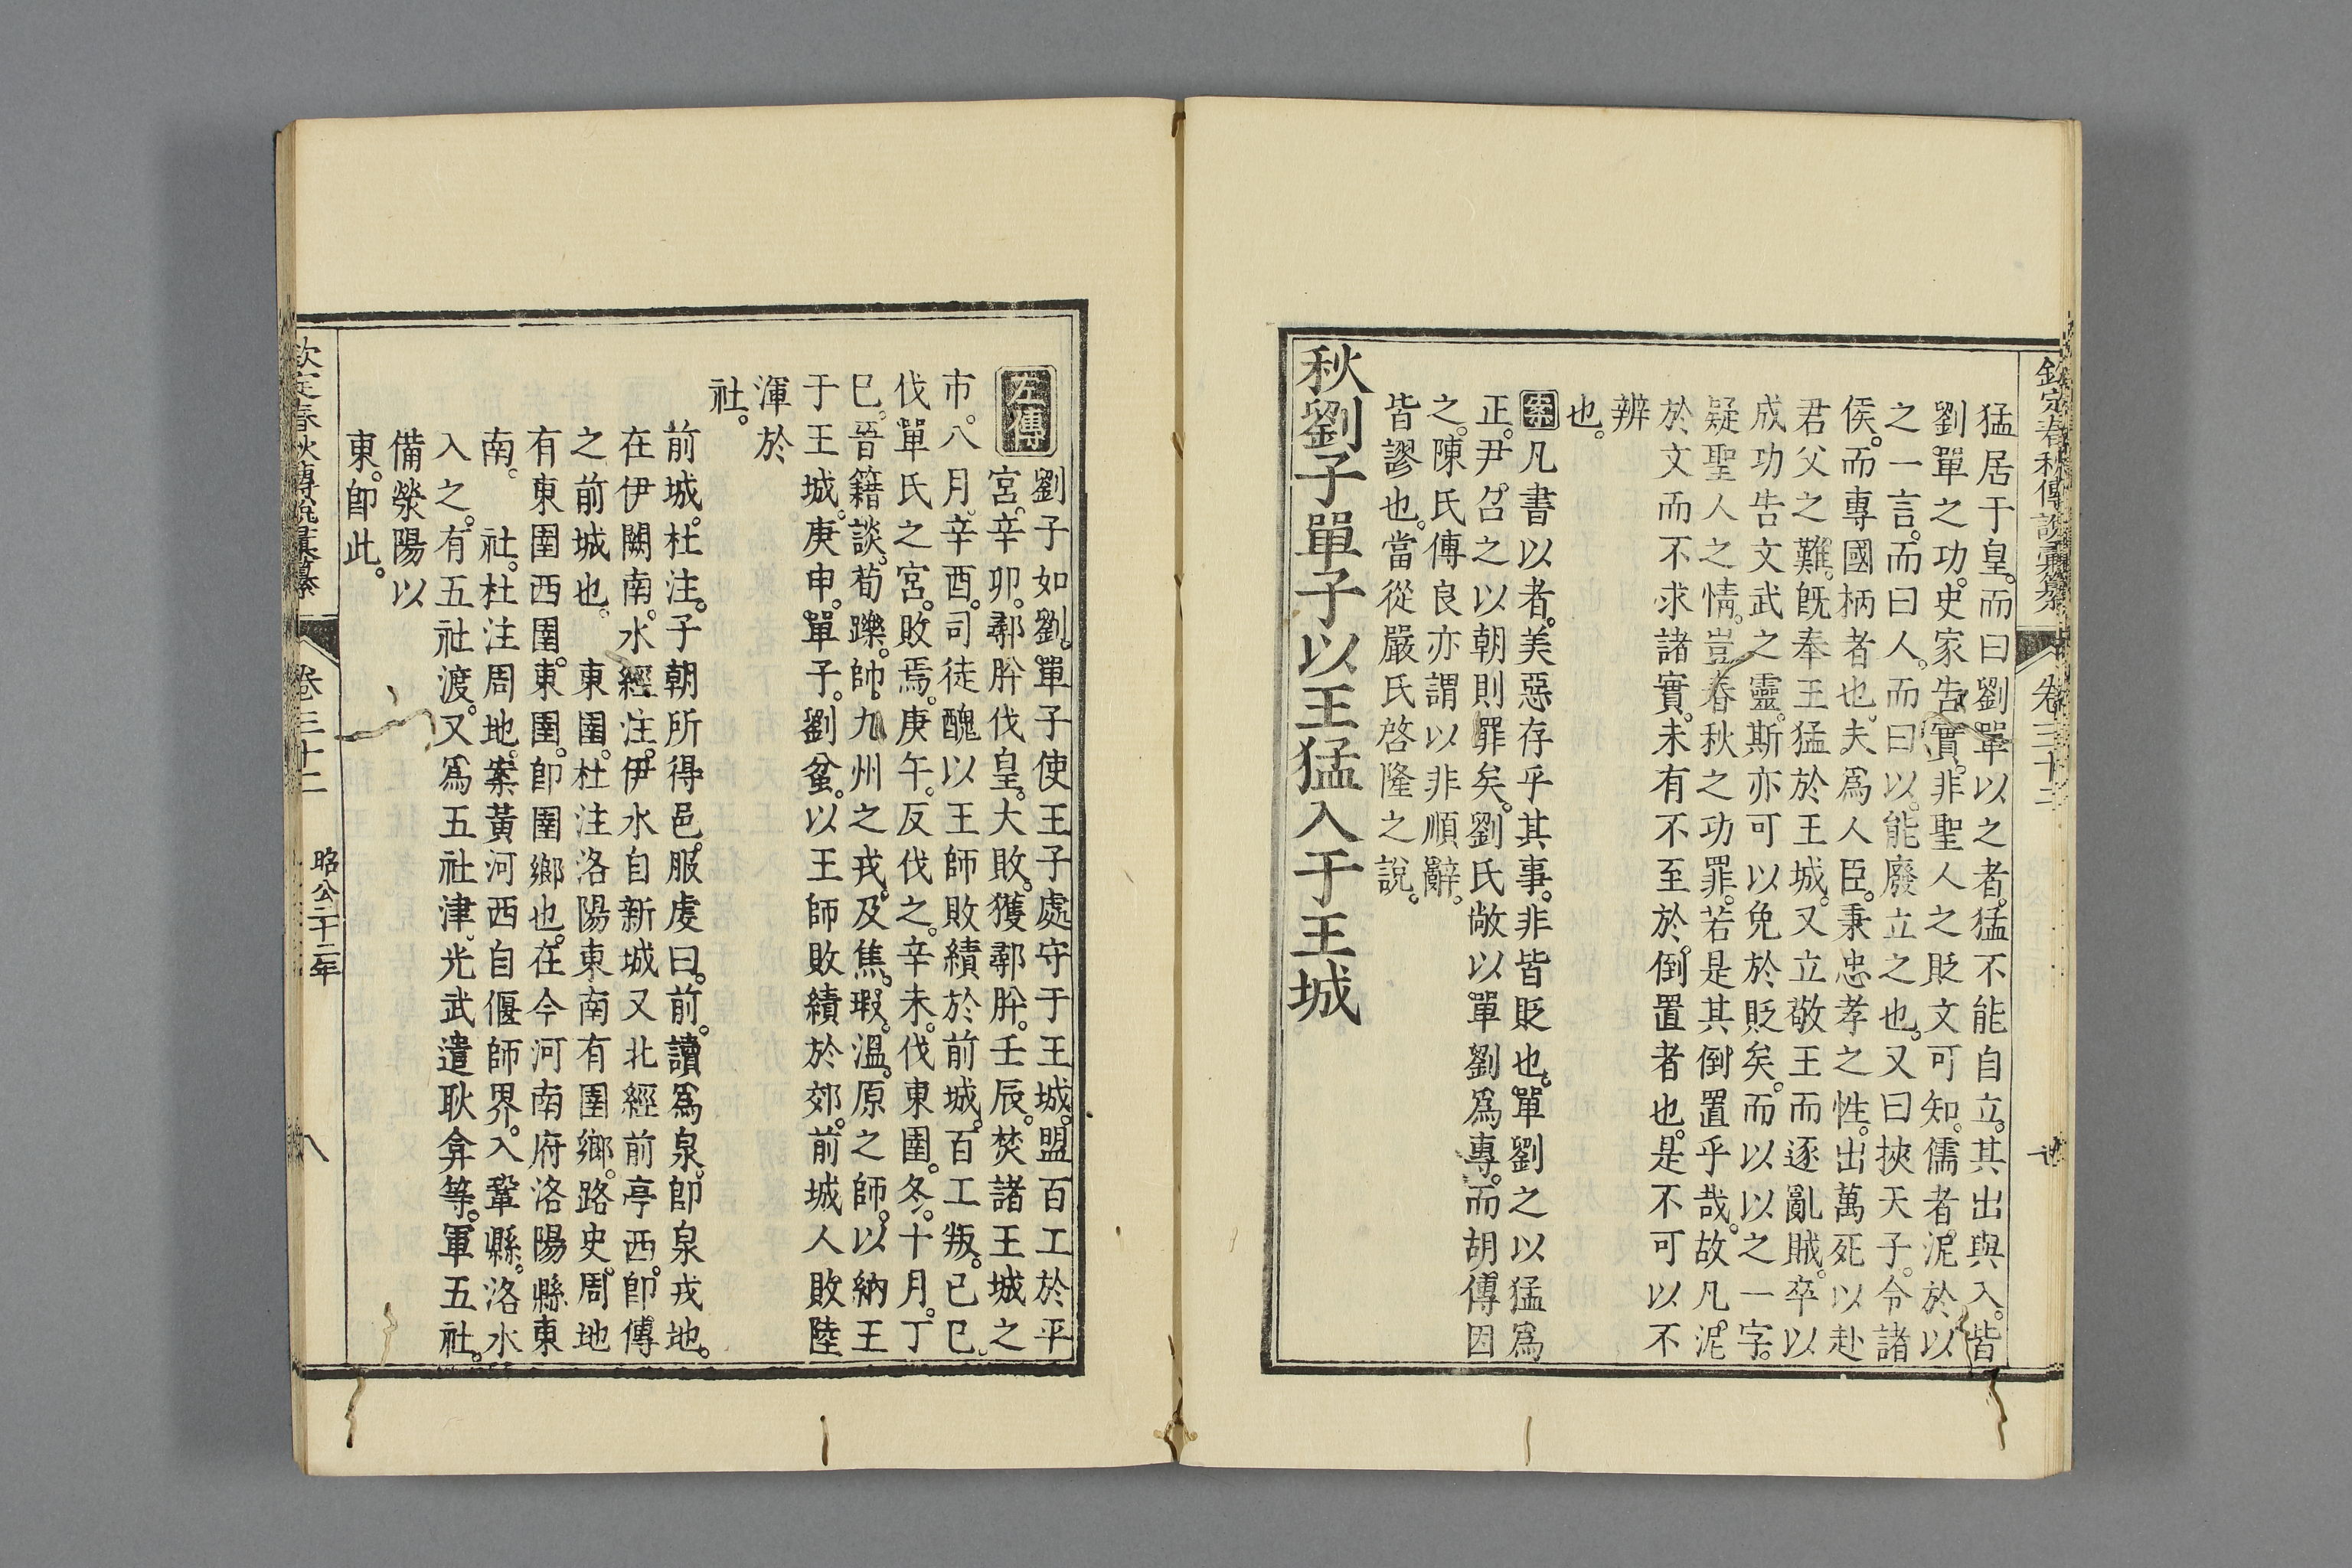 欽定春秋傳說彙纂 卷三十二
猛居于皇。而曰劉單以之者。猛不能自立。其出與入。皆
劉單之功。史家告實。非聖人之貶文可知。儒者泥於以
之一言。而曰人。而曰以。能廢立之也。又曰挾天子。令諸
侯。而專國柄者也。夫爲人臣。秉忠孝之性。出萬死以赴
君父之難。旣奉王猛於王城。又立敬王而逐亂賊。卒以
成功告文武之靈。斯亦可以免於貶矣。而以以之一字。
疑聖人之情。豈春秋之功罪。若是其倒置乎哉。故凡泥
於文而不求諸實。未有不至於倒置者也。是不可以不
辨
也。
案凡書以者。美惡存乎其事。非皆貶也。單劉之以猛爲
正。尹召之以朝則罪矣。劉氏敞以單劉爲專。而胡傳因
之。陳氏傳良亦謂以非順辭。
皆謬也。當從嚴氏啓隆之說。
秋劉子單子以王猛入于王城
左傳
劉子如劉。單子使王子處守于王城。盟百工於平
宮。辛卯。鄩肸伐皇。大敗。獲鄩肸。壬辰。焚諸王城之
市。八月。辛酉。司徒醜以王師敗績於前城。百工叛。己巳。
伐單氏之宮。敗焉。庚午。反伐之。辛未。伐東圉。冬。十月。丁
巳。晉籍談。荀躒。帥九州之戎。及焦。瑕。溫。原之師。以納王
于王城。庚申。單子。劉蚠。以王師敗績於郊。前城人敗陸
渾於
社。
前城。杜注。子朝所得邑。服虔曰。前。讀爲泉。卽泉戎地。
在伊闕南。水經注。伊水自新城又北經前亭西。卽傳
之前城也。 東圉。杜注洛陽東南有圉鄉。路史。周地
有東圉西圉。東圉。卽圉鄉也。在今河南府洛陽縣東
南。 社。杜注周地。案黃河西自偃師界。入鞏縣。洛水
入之。有五社渡。又爲五社津。光武遣耿弇等。軍五社。
備滎陽以
東。卽此。
欽定春秋傳說彙纂 卷三十二 昭公二十二年 八